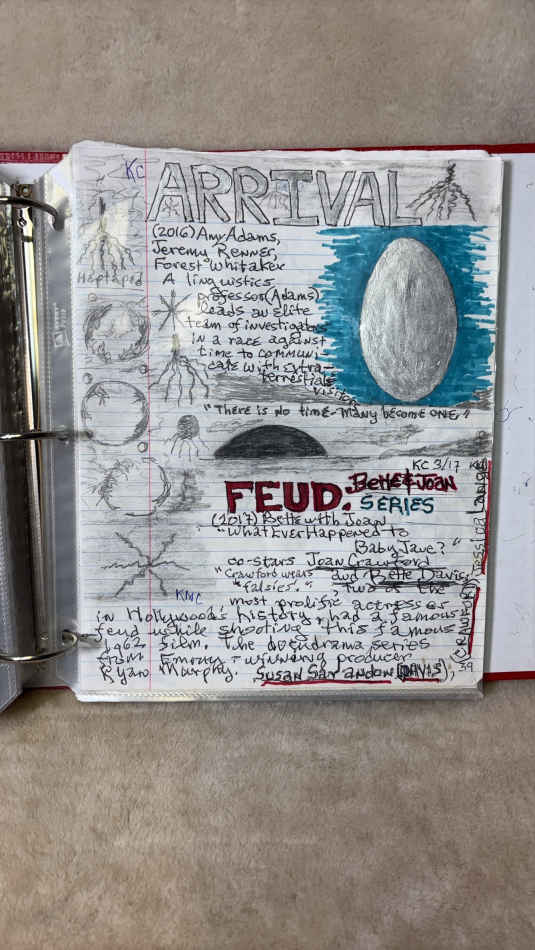 KC
ARRIVAL
(2016) Amy Adams,
Jeremy Renner,
Forest Whitaker
Heptapod
A linguistics
professor (Adams)
leads an elite
team of investigators
in a race against
time to communi
cate with extra-
terrestrial
visitors
"There is no time-many become ONE."
KC 3/17
FEUD. Bette & Joan
SERIES
(2017) Bette with Joan
"What Ever Happened to
Baby Jane?"
co-stars Joan Crawford
"Crawford wears and Bette Davis,
"falsies." Two of the
KNC
most prolific actresses
in Hollywood's history, had a famous
feud while shooting this famous
1962 film. The docudrama series
from Emmy-winning producer
Ryan Murphy. Susan Sarandon (DAVIS),
Jessica Lange
(CRAWFORD)
39